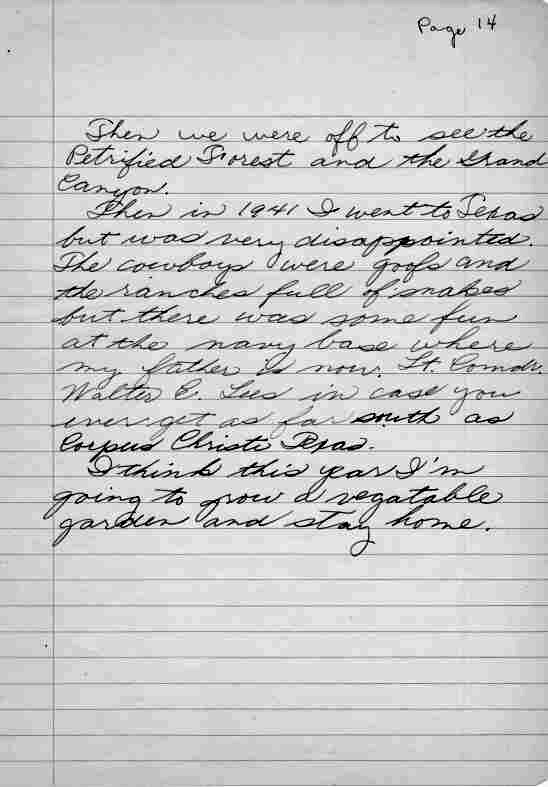 Page 14
Then we were off to see the
Petrified Forest and the Grand
Canyon.
Then in 1941 I went to Texas
but was very disappointed.
The cowboys were goofs and
the ranches full of snakes
but there was some fun
at the navy base where
my father is now. Lt. Comdr.
Walter E. Lees in case you
ever get as far south as
Corpus Christi Texas.
I think this year I'm
going to grow a vegatable
garden and stay home.